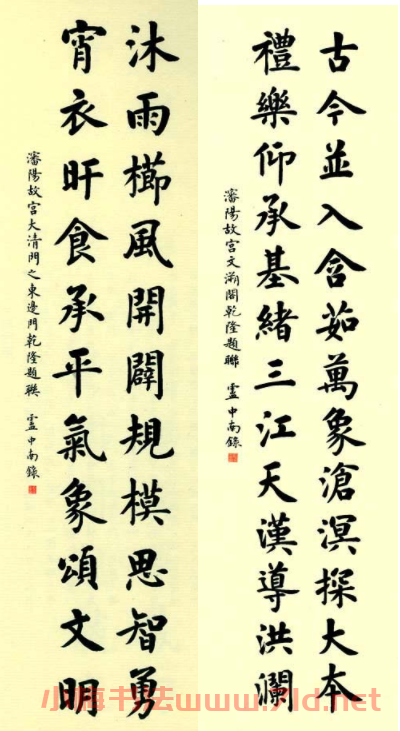 古今並入含茹萬象滄溟探大本
禮樂仰承基緒三江天漢導洪瀾
瀋陽故宮文溯閣乾隆題聯 盧中南錄
沐雨櫛風開闢規模思智勇
宵衣旰食承平氣象頌文明
瀋陽故宮大清門之東邊門乾隆題聯 盧中南錄
小梅书法www.7ld.net